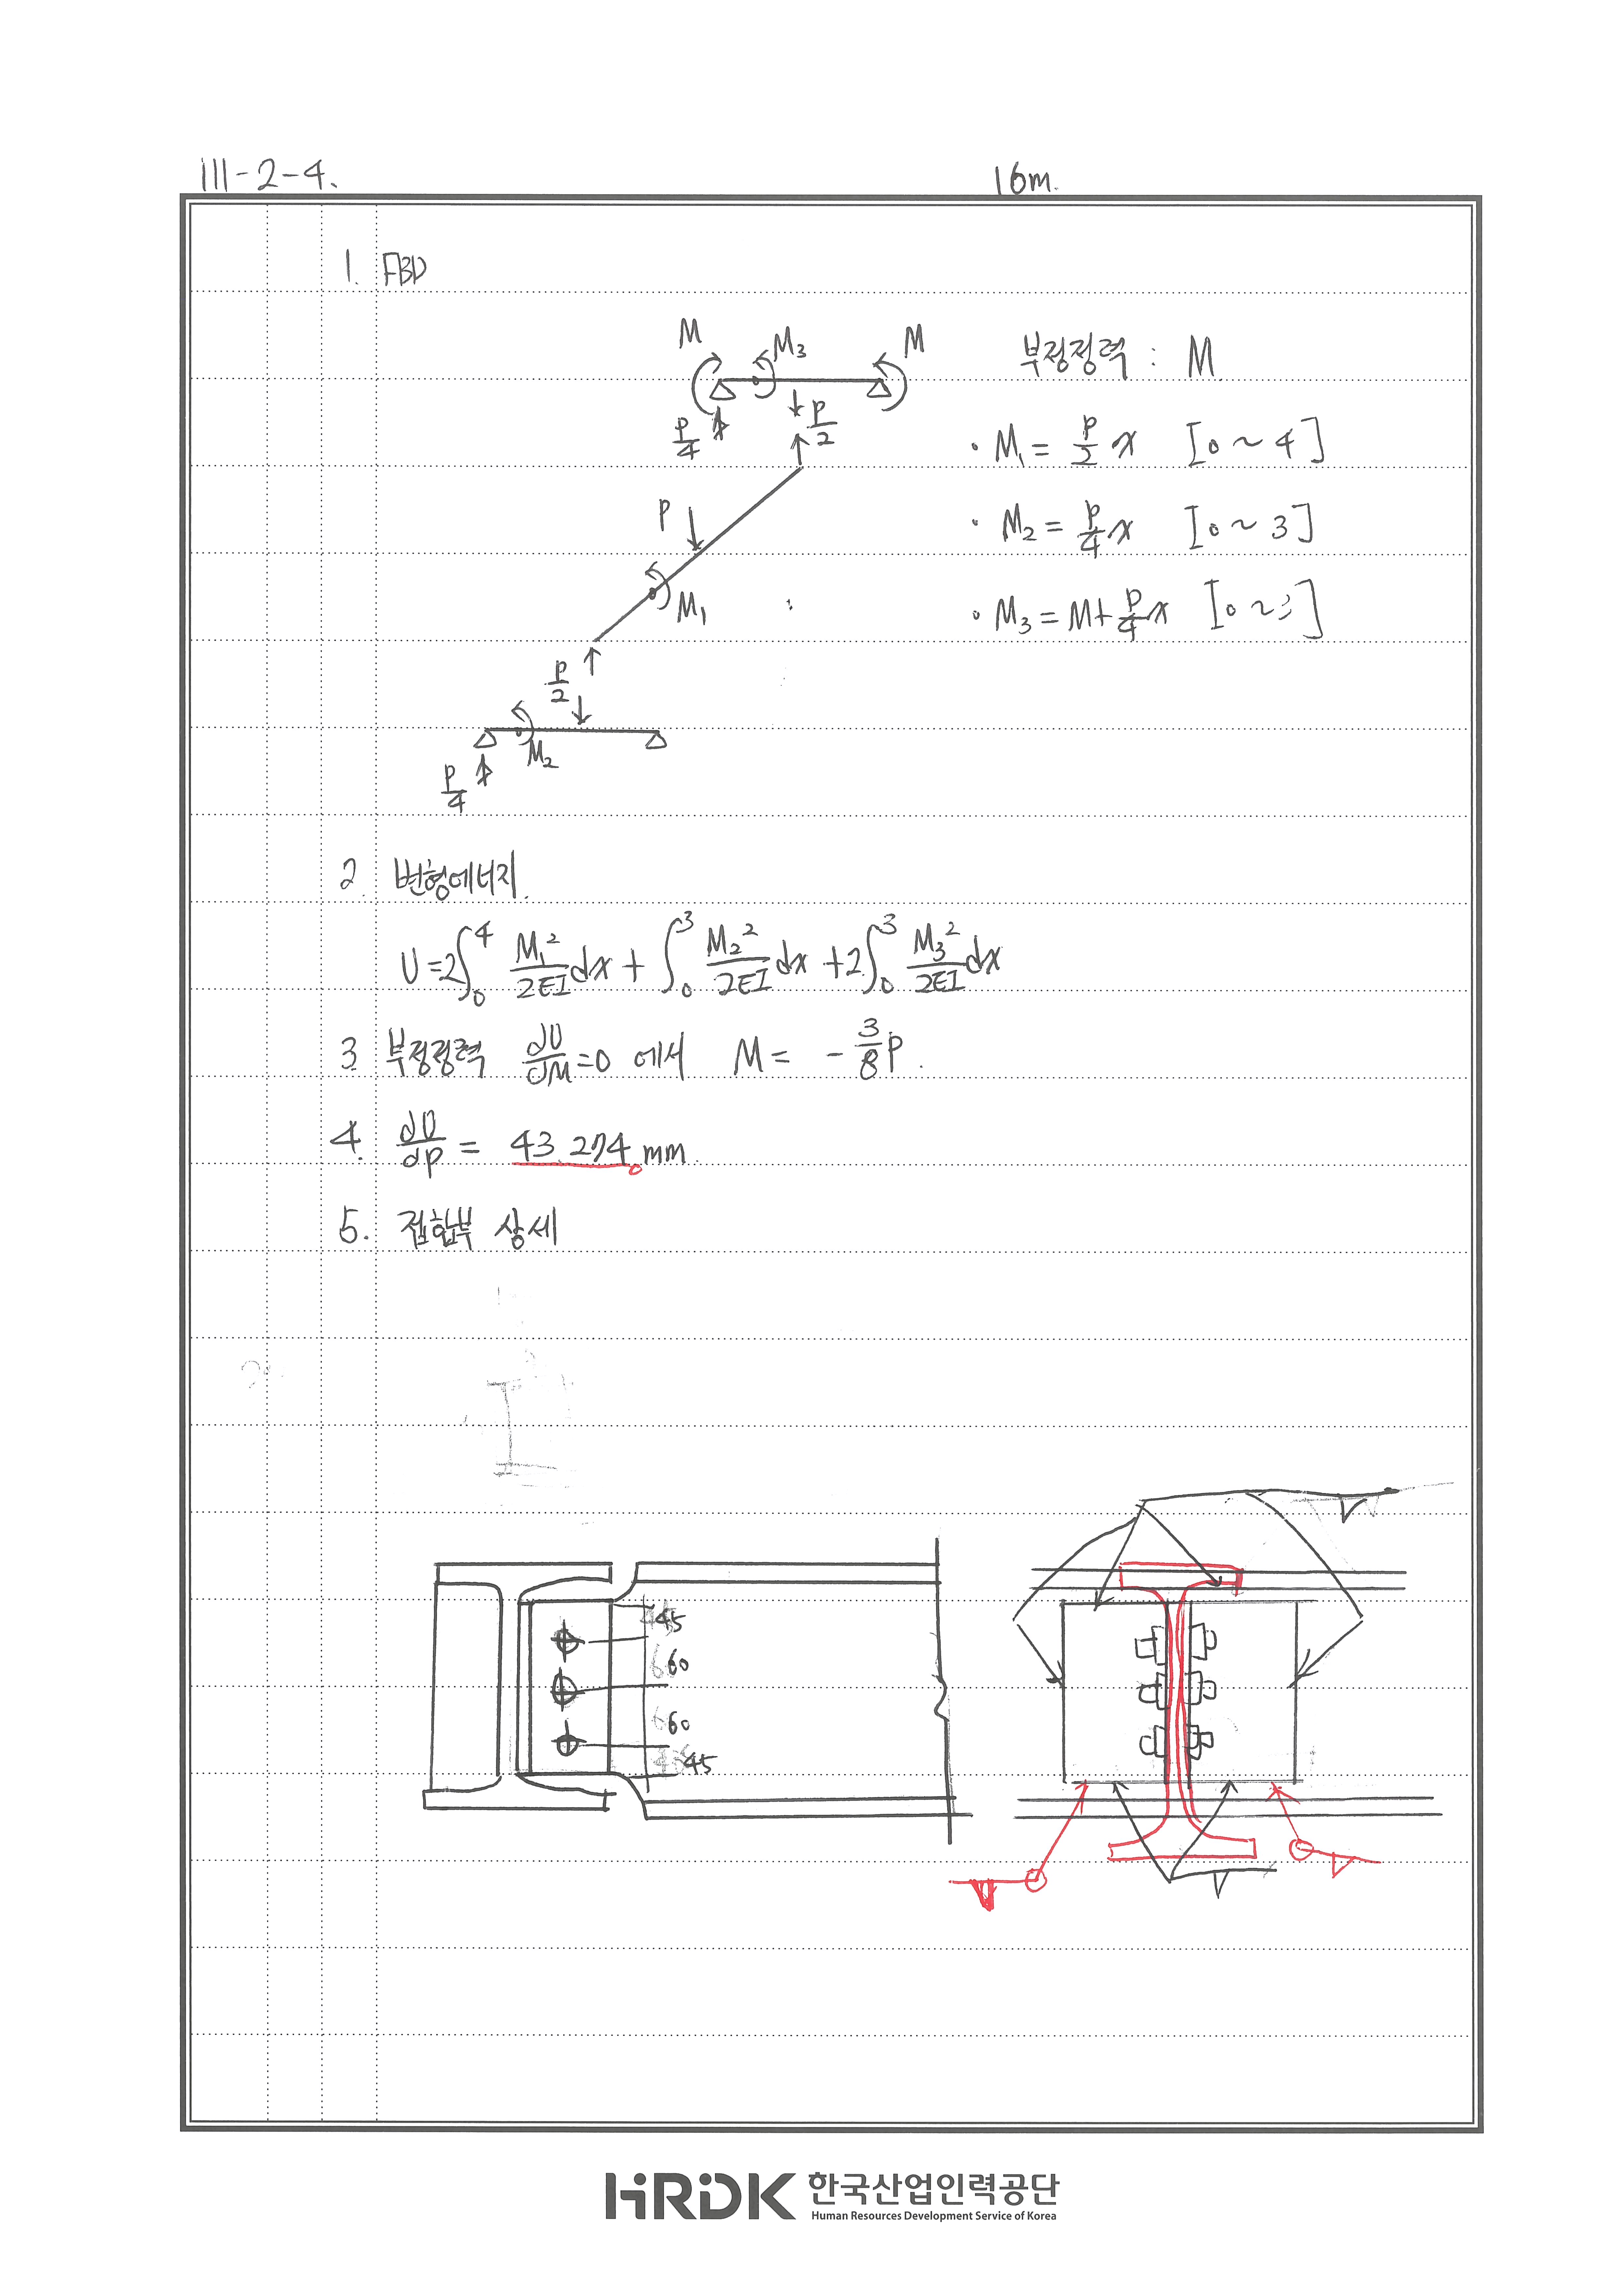 111-2-4.
16m.
1. FBD
M
M3
M
부정정력 : M
P/4
P/2
· M1 = P/2 x [0 ~ 4]
P
· M2 = P/4 x [0 ~ 3]
M1
· M3 = M + P/4 x [0 ~ 3]
P/2
M2
P/4
2. 변형에너지.
U = 2∫₀⁴ M1²/2EI dx + ∫₀³ M2²/2EI dx + 2∫₀³ M3²/2EI dx
3. 부정정력 dU/dM = 0 에서 M = - 3/8 P.
4. dU/dP = 43.274 mm.
5. 접합부 상세
45
60
60
45
HRDK 한국산업인력공단
Human Resources Development Service of Korea